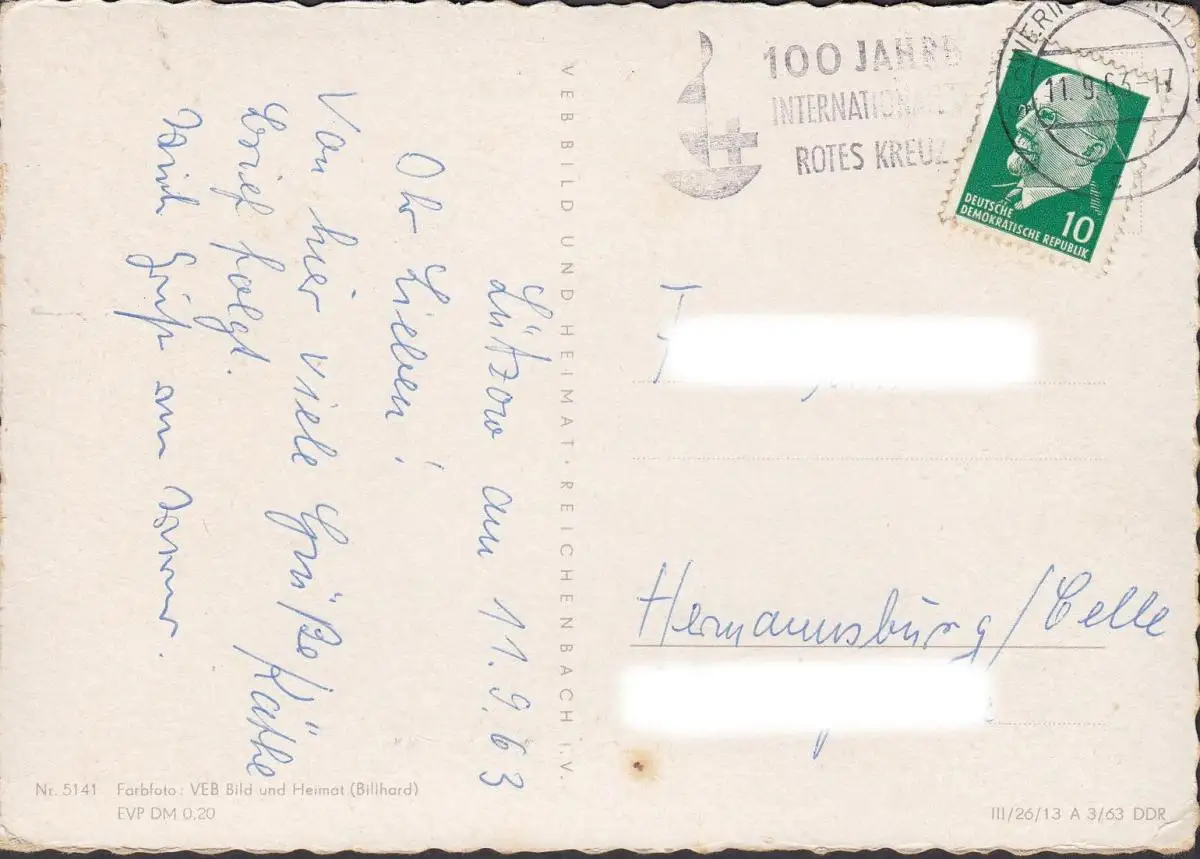 100 JAHRE
INTERNATIONALES
ROTES KREUZ
11. 9. 63-17
DEUTSCHE
DEMOKRATISCHE REPUBLIK
10
Lützow am 11.9.63
Ihr Lieben!
Von hier viele Grüße
Brief folgt. Käthe
Gruß an
VEB BILD UND HEIMAT · REICHENBACH I.V.
Hermannsburg/Celle
Nr. 5141 Farbfoto: VEB Bild und Heimat (Billhard)
EVP DM 0.20
III/26/13 A 3/63 DDR